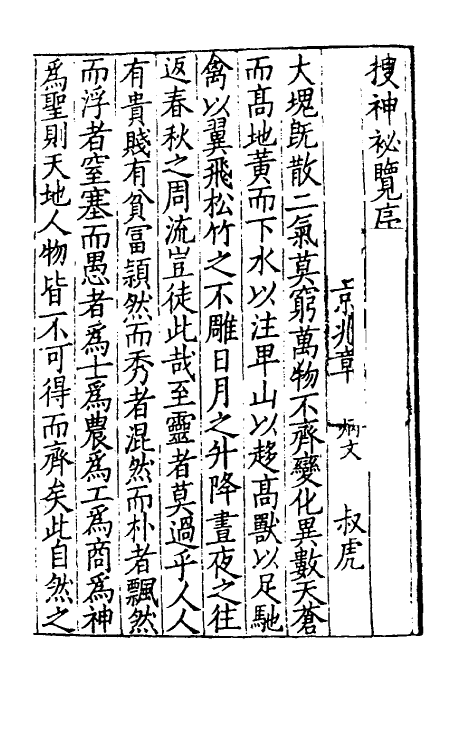 搜神祕覽序
京兆章 炳文 叔虎
大塊旣散二氣莫窮萬物不齊變化異數天蒼
而髙地黄而下水以注卑山以趍髙獸以足馳
禽以翼飛松竹之不雕日月之升降晝夜之往
返春秋之周流豈徒此哉至靈者莫過乎人人
有貴賤有貧冨頴然而秀者混然而朴者飄然
而浮者窒塞而愚者爲士爲農爲工爲商爲神
爲聖則天地人物皆不可得而齊矣此自然之